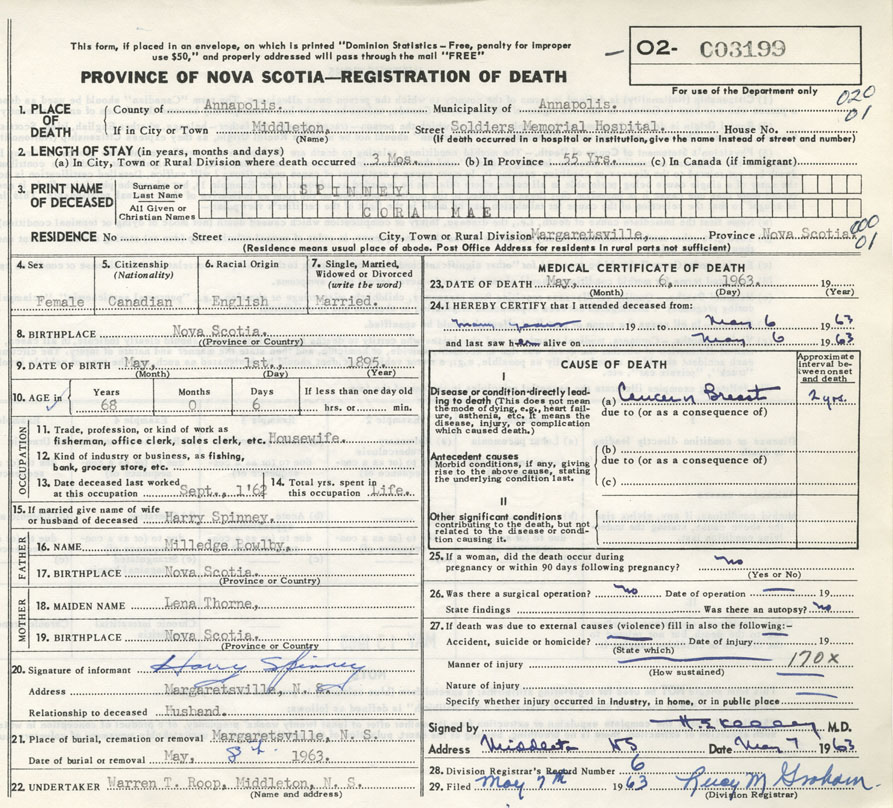 This form, if placed in an envelope, on which is printed "Dominion Statistics – Free, penalty for improper
use $50," and properly addressed will pass through the mail "FREE"
PROVINCE OF NOVA SCOTIA—REGISTRATION OF DEATH
O2- C03199
For use of the Department only
020
01
1. PLACE OF DEATH
County of Annapolis. Municipality of Annapolis.
If in City or Town Middleton, (Name) Street Soldiers Memorial Hospital. House No.
(If death occurred in a hospital or institution, give the name instead of street and number)
2. LENGTH OF STAY (in years, months and days)
(a) In City, Town or Rural Division where death occurred 3 Mos. (b) In Province 55 Yrs. (c) In Canada (if immigrant)
3. PRINT NAME OF DECEASED
Surname or Last Name SPINNEY
All Given or Christian Names CORA MAE
RESIDENCE No Street City, Town or Rural Division Margaretsville, Province Nova Scotia,
(Residence means usual place of abode. Post Office Address for residents in rural parts not sufficient)
000
01
4. Sex Female
5. Citizenship (Nationality) Canadian
6. Racial Origin English
7. Single, Married, Widowed or Divorced (write the word) Married.
8. BIRTHPLACE Nova Scotia.
(Province or Country)
9. DATE OF BIRTH May, 1st., 1895.
(Month) (Day) (Year)
10. AGE in Years 68 Months 0 Days 6 If less than one day old hrs. or min.
OCCUPATION
11. Trade, profession, or kind of work as
fisherman, office clerk, sales clerk, etc. Housewife.
12. Kind of industry or business, as fishing,
bank, grocery store, etc.
13. Date deceased last worked at this occupation Sept., 1'62
14. Total yrs. spent in this occupation Life.
15. If married give name of wife
or husband of deceased Harry Spinney.
FATHER
16. NAME Milledge Fowlby,
17. BIRTHPLACE Nova Scotia.
(Province or Country)
MOTHER
18. MAIDEN NAME Lena Thorne,
19. BIRTHPLACE Nova Scotia.
(Province or Country
20. Signature of informant Harry Spinney
Address Margaretsville, N. S.
Relationship to deceased Husband.
21. Place of burial, cremation or removal Margaretsville, N. S.
Date of burial or removal May, 8th. 1963.
22. UNDERTAKER Warren T. Roop, Middleton, N. S.
(Name and address)
MEDICAL CERTIFICATE OF DEATH
23. DATE OF DEATH May, 6, 1963. 19
(Month) (Day) (Year)
24. I HEREBY CERTIFY that I attended deceased from:
many years 19 to May 6 1963
and last saw him alive on May 6 1963
CAUSE OF DEATH
Approximate interval between onset and death
I
Disease or condition directly leading to death (This does not mean the mode of dying, e.g., heart failure, asthenia, etc. It means the disease, injury, or complication which caused death.)
(a) Cancer of Breast 2 yrs.
due to (or as a consequence of)
Antecedent causes
Morbid conditions, if any, giving rise to the above cause, stating the underlying condition last.
(b)
due to (or as a consequence of)
(c)
II
Other significant conditions
contributing to the death, but not related to the disease or condition causing it.
25. If a woman, did the death occur during
pregnancy or within 90 days following pregnancy? no
(Yes or No)
26. Was there a surgical operation? no Date of operation 19
State findings Was there an autopsy? no
27. If death was due to external causes (violence) fill in also the following:–
Accident, suicide or homicide? Date of injury 19
(State which)
Manner of injury 170X
(How sustained)
Nature of injury
Specify whether injury occurred in industry, in home, or in public place
Signed by M.D.
Address Middleton NS Date May 7 1963
28. Division Registrar's Record Number 6
29. Filed May 7th 1963 M Graham
(Division Registrar)